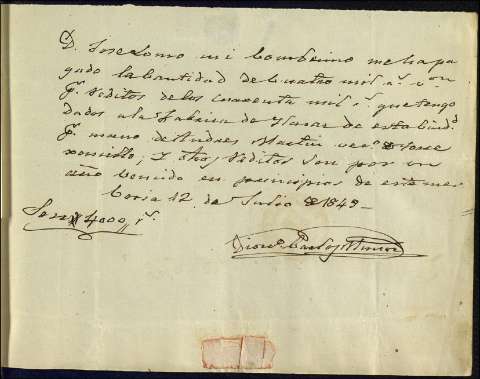 D. Jose Lomo mi conve mehapa
gado la Cantidad de Cuatro mil r.ˢ v.ⁿ en
p.ʳ Réditos de los cuarenta mil r.ˢ que tengo
dados ala Fabrica de de esta Ciud.ᵈ
p.ʳ mano de Andres Martin vec.º de
y dhos Réditos son por un
año vencido en principios de este mes
Coria 12 de Julio de 1849 –
Son 4000,, r.ˢ